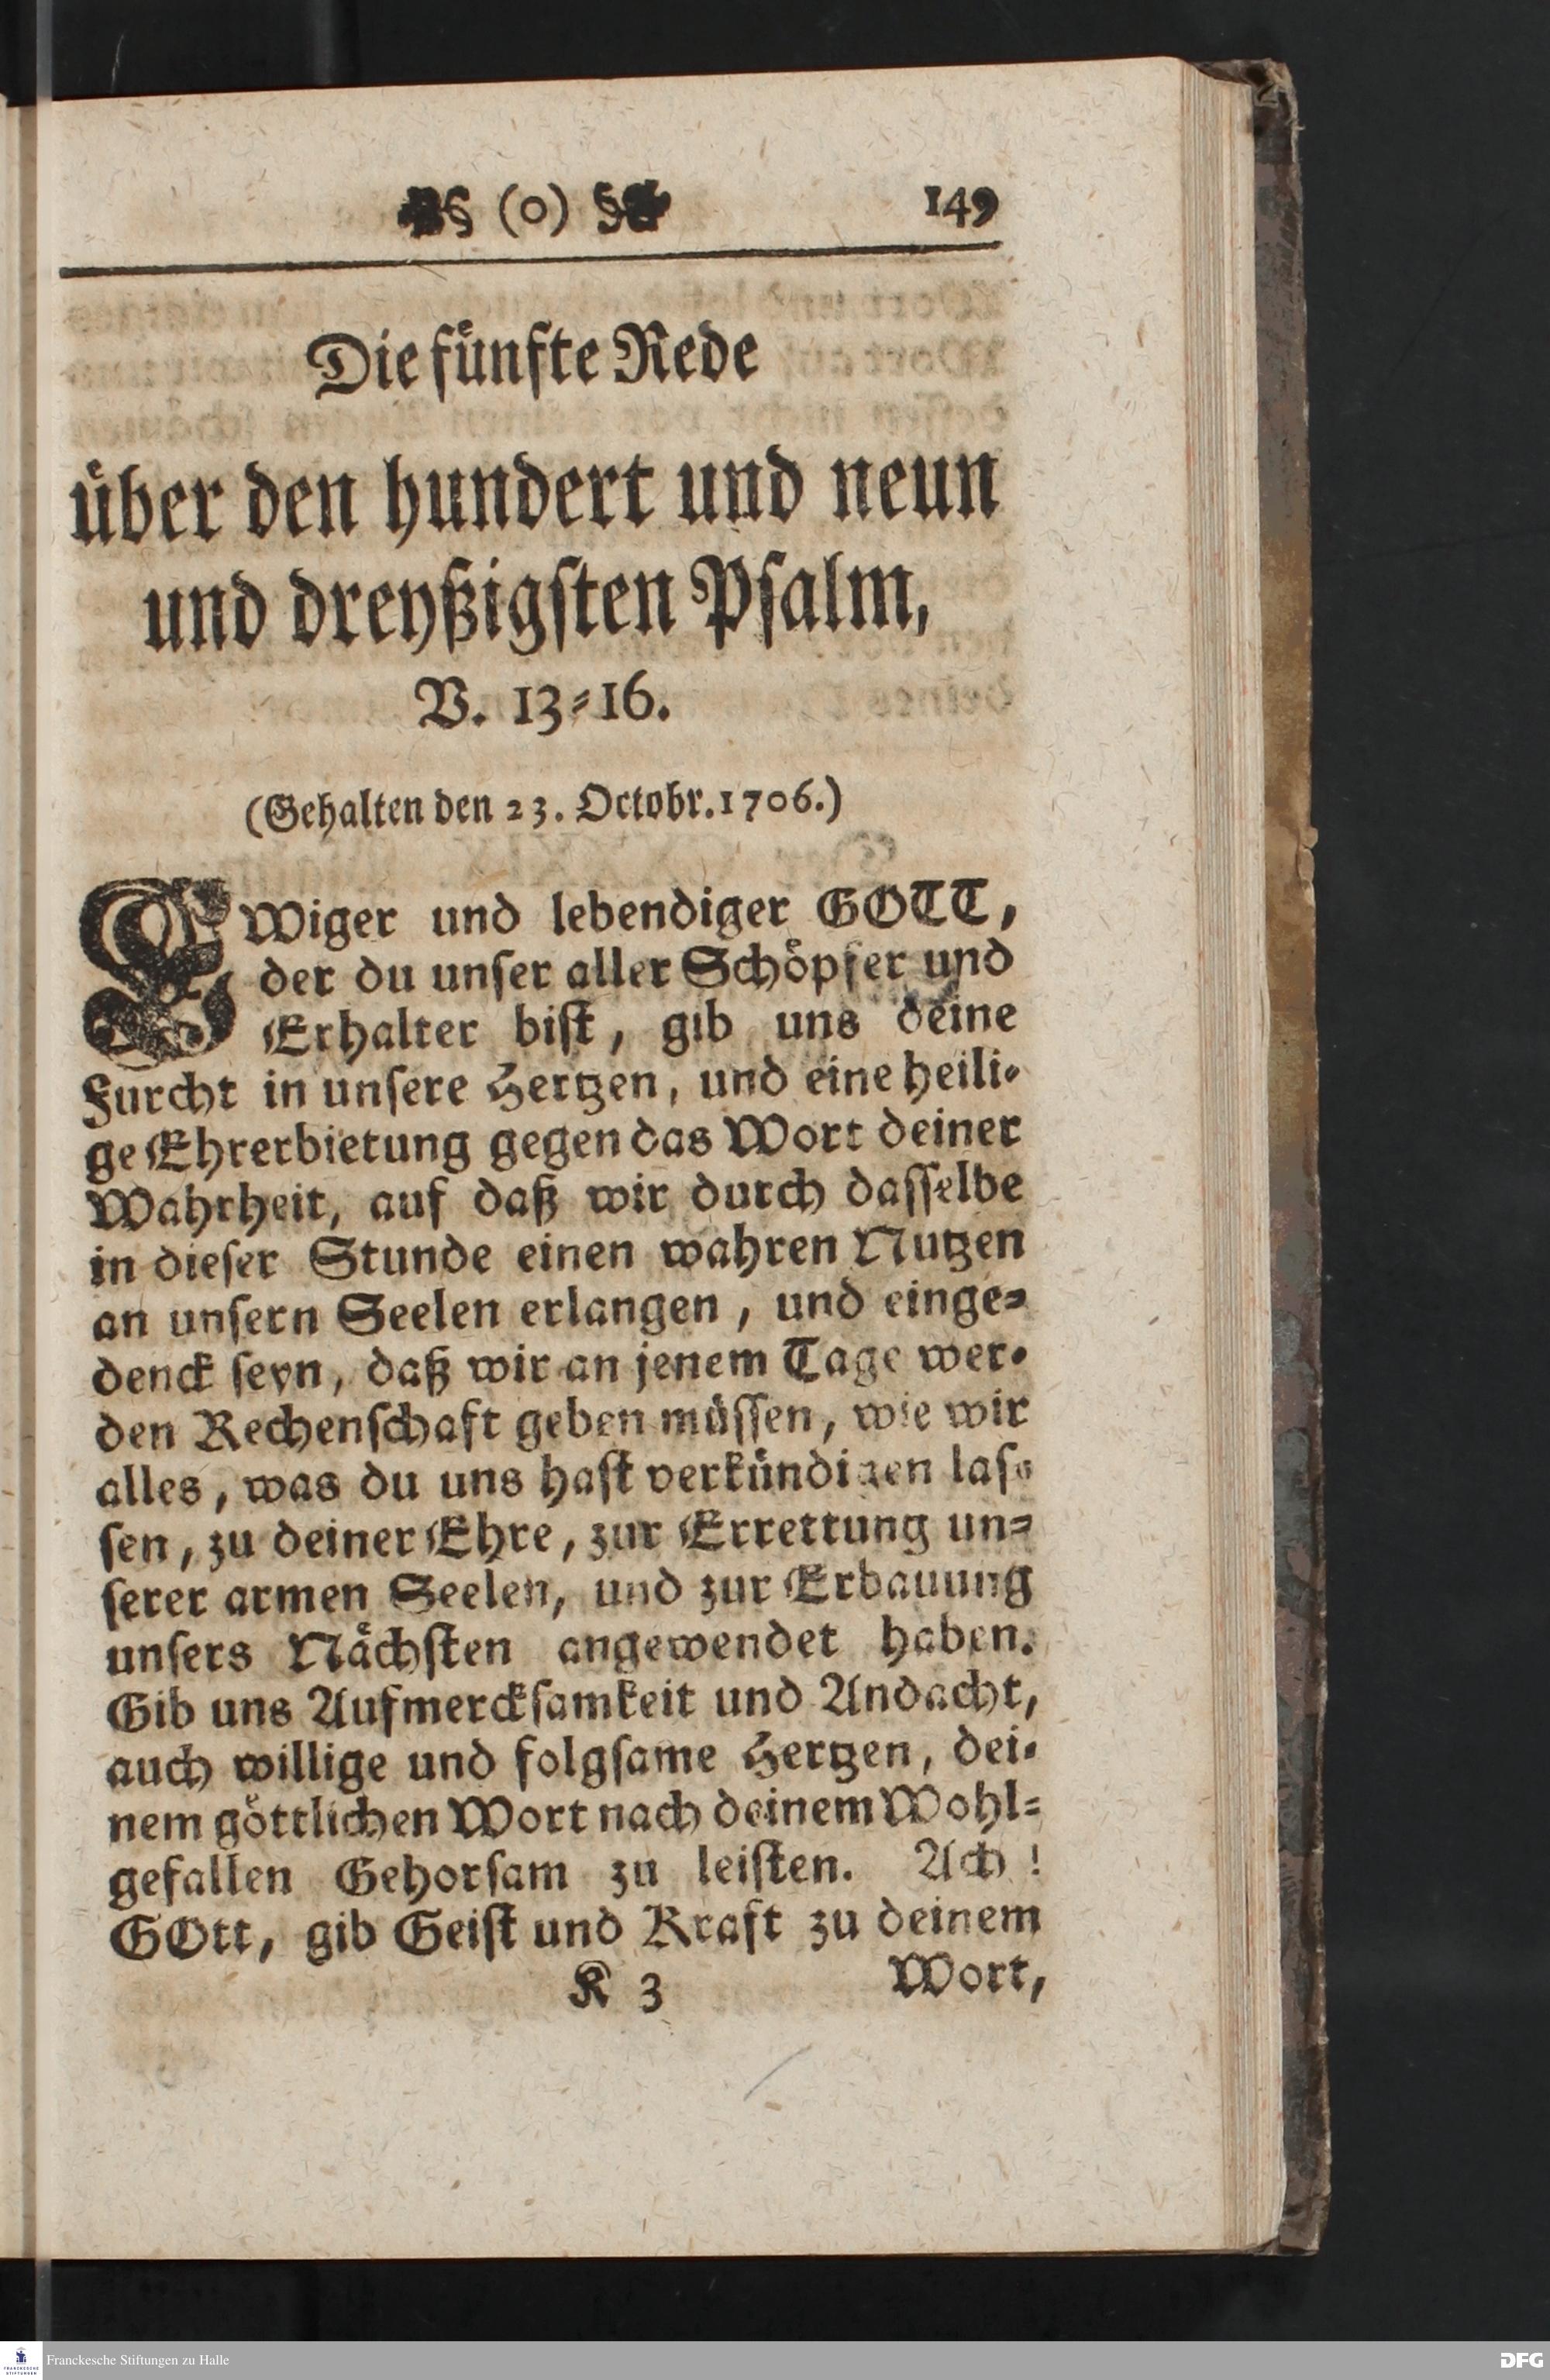 § (o) § 149
Die fünfte Rede
über den hundert und neun
und dreyßigsten Psalm,
V. 13-16.
(Gehalten den 23. Octobr. 1706.)
EWiger und lebendiger GOTT,
der du unser aller Schöpfer und
Erhalter bist, gib uns deine
Furcht in unsere Hertzen, und eine heili-
ge Ehrerbietung gegen das Wort deiner
Wahrheit, auf daß wir durch dasselbe
in dieser Stunde einen wahren Nutzen
an unsern Seelen erlangen, und einge-
denck seyn, daß wir an jenem Tage wer-
den Rechenschaft geben müssen, wie wir
alles, was du uns hast verkündigen las-
sen, zu deiner Ehre, zur Errettung un-
serer armen Seelen, und zur Erbauung
unsers Nächsten angewendet haben.
Gib uns Aufmercksamkeit und Andacht,
auch willige und folgsame Hertzen, dei-
nem göttlichen Wort nach deinem Wohl-
gefallen Gehorsam zu leisten. Ach!
GOtt, gib Geist und Kraft zu deinem
K 3 Wort,
Franckesche Stiftungen zu Halle
DFG